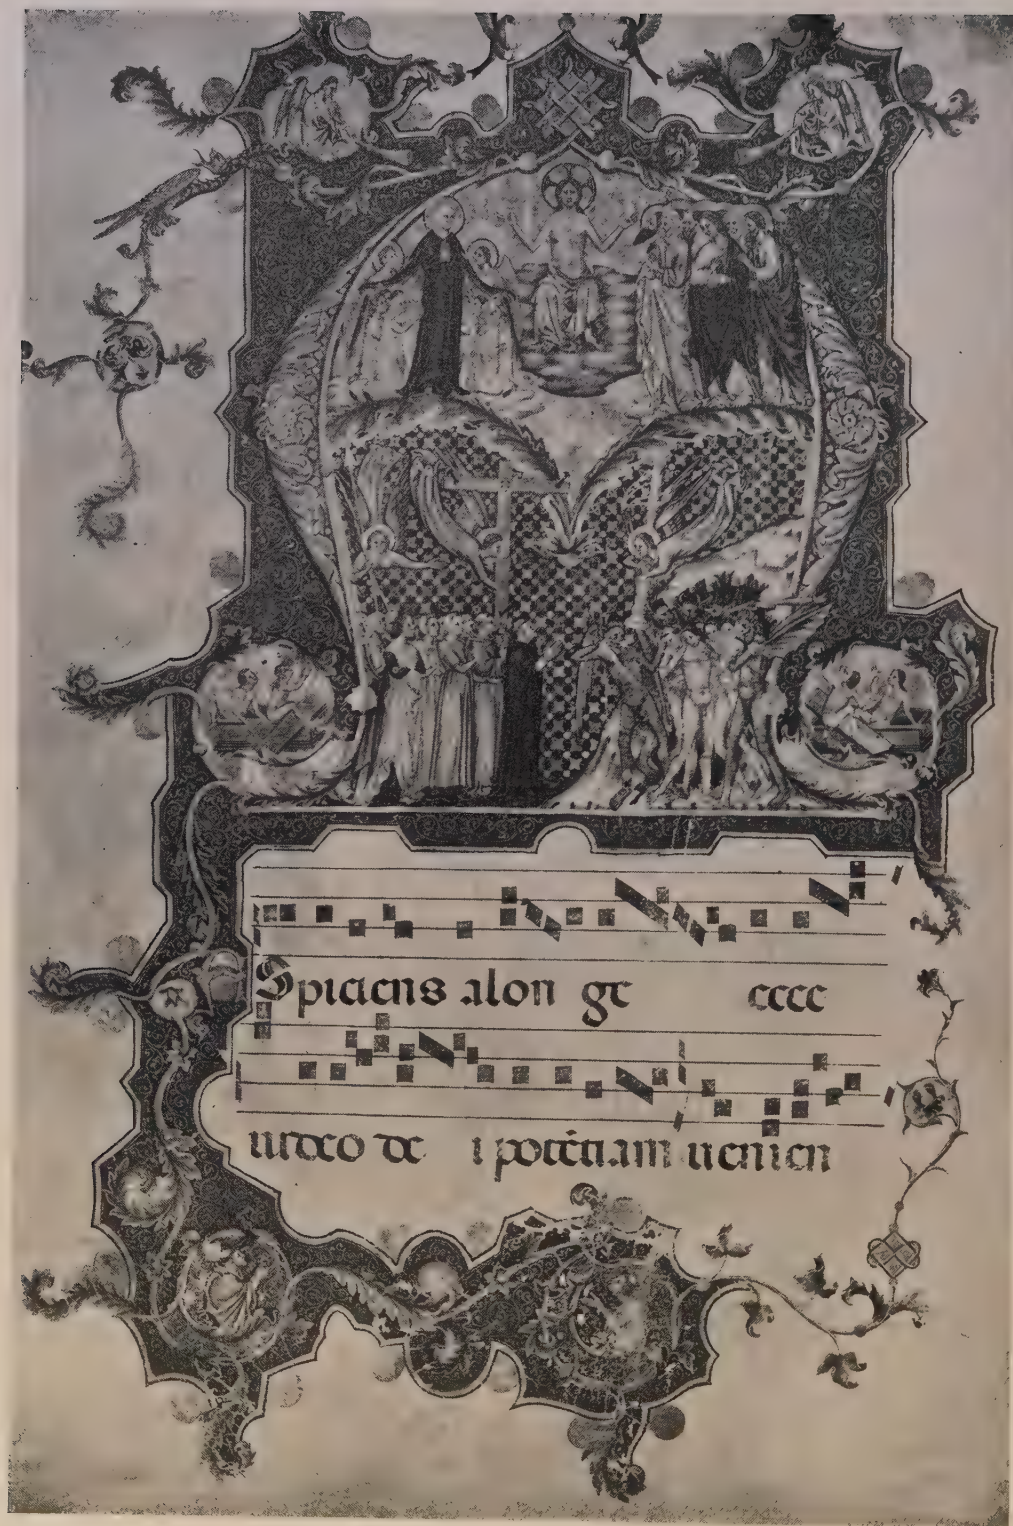 Spiciens alon ge ecce
uideo de i potẽtiam uenien